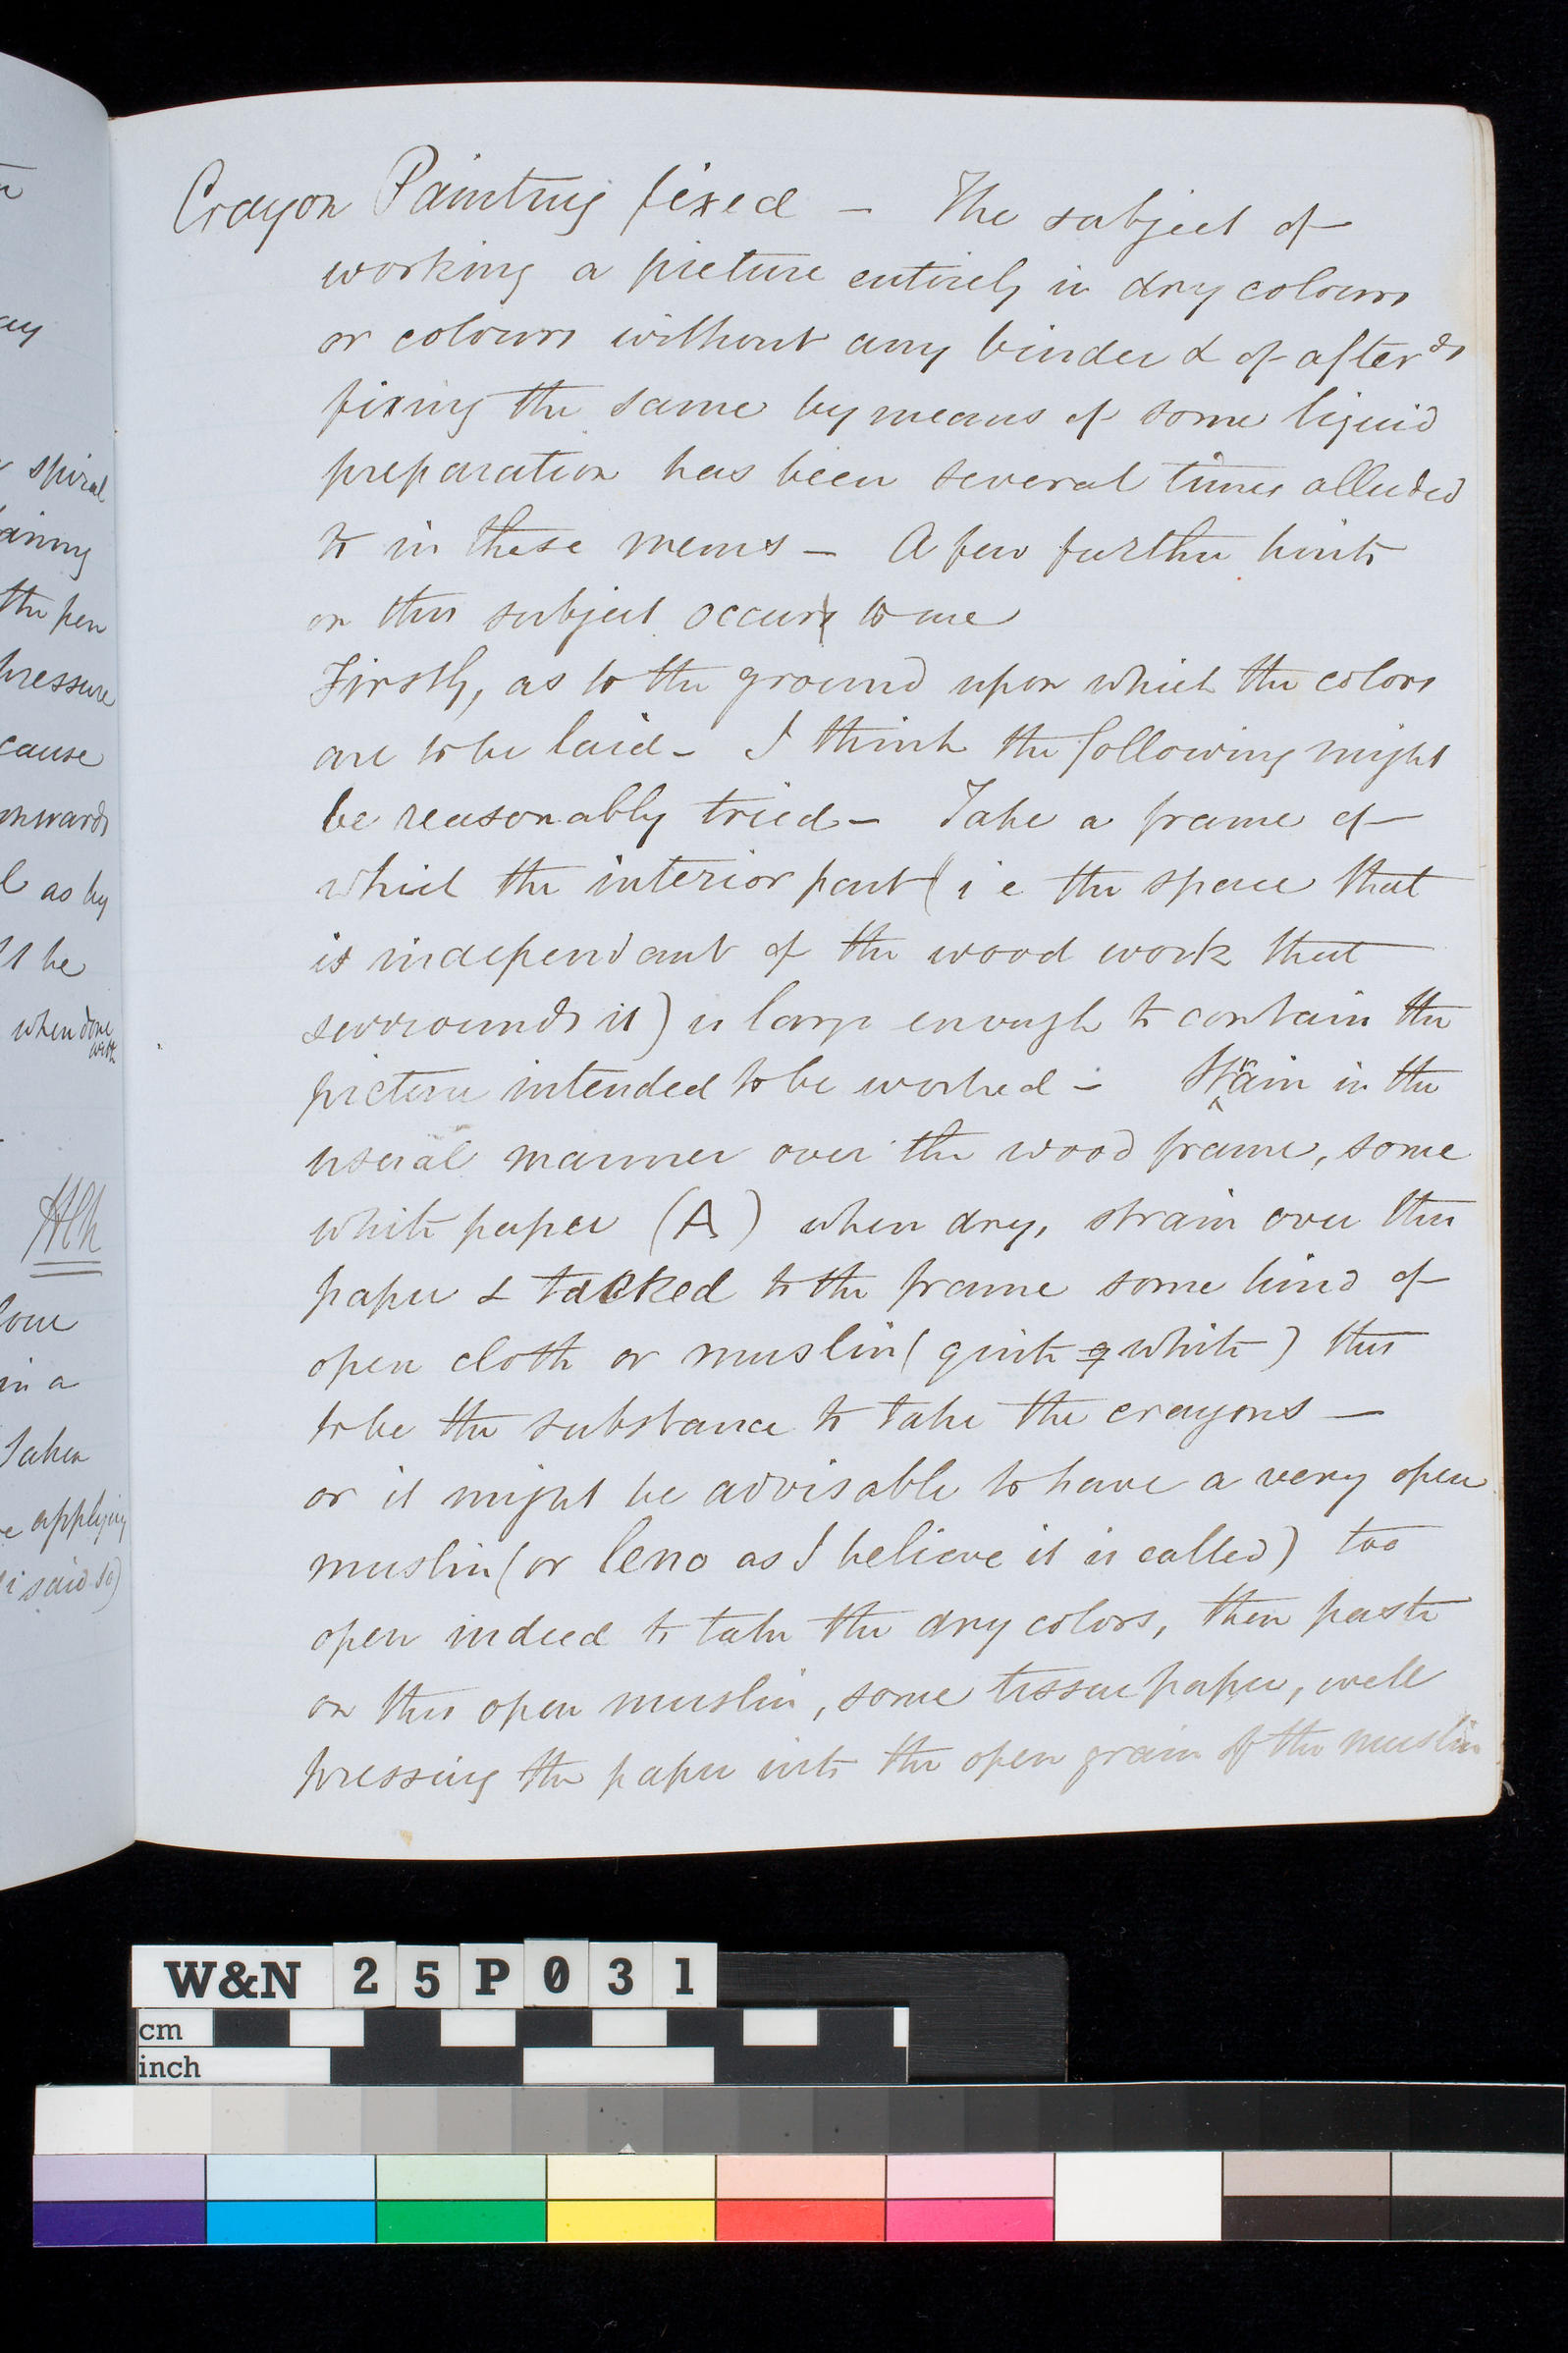 Crayon Painting fixed — The subject of
working a picture entirely in dry colours
or colours without any binder & of after ds
fixing the same by means of some liquid
preparation has been several times alluded
to in these mems — A few further hints
on this subject occur to me
Firstly, as to the ground upon which the colors
are to be laid — I think the following might
be reasonably tried — Take a frame of
which the interior part (i e the space that
is independant of the wood work that
surrounds it) is large enough to contain the
picture intended to be worked — Strain in the
usual manner over the wood frame, some
white paper (A) when dry, strain over this
paper & tacked to the frame some kind of
open cloth or muslin (quite q white) this
to be the substance to take the crayons —
or it might be advisable to have a very open
muslin (or leno as I believe it is called) too
open indeed to take the dry colors, then paste
on this open muslin, some tissue paper, well
pressing the paper into the open grain of the muslin
spiral
the pen
pressure
cause
as by
be
when done
with
in a
Taken
applying
i said so)
W&N 25P031
cm
inch